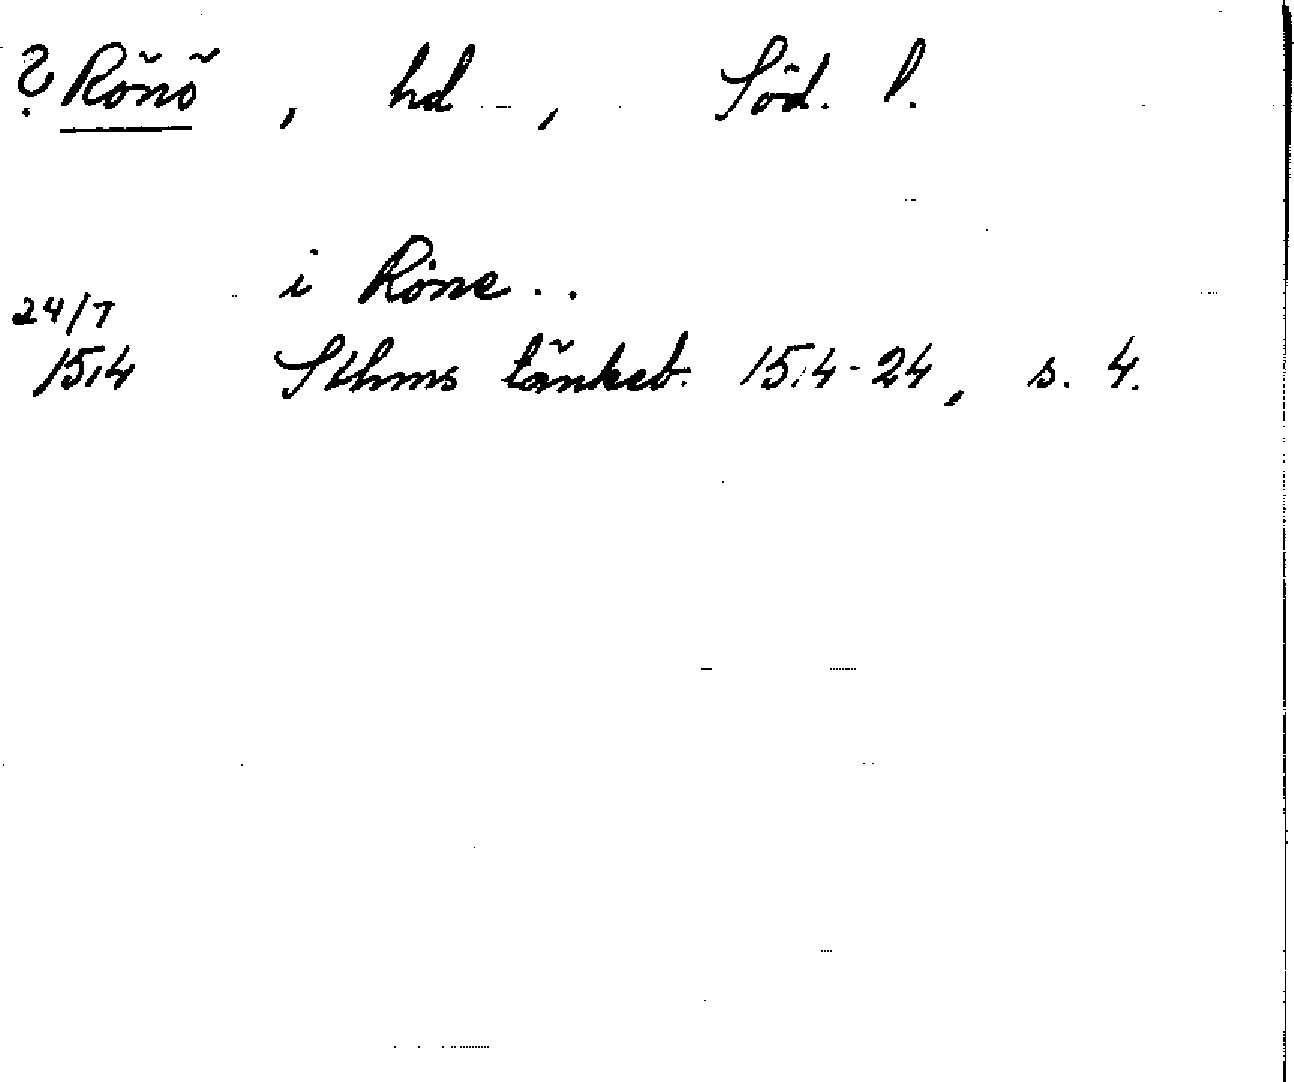 ? Rönö, hd, Söd. l.
i Röne..
24/7
1514 Sthms tänkeb. 1514-24, s. 4.